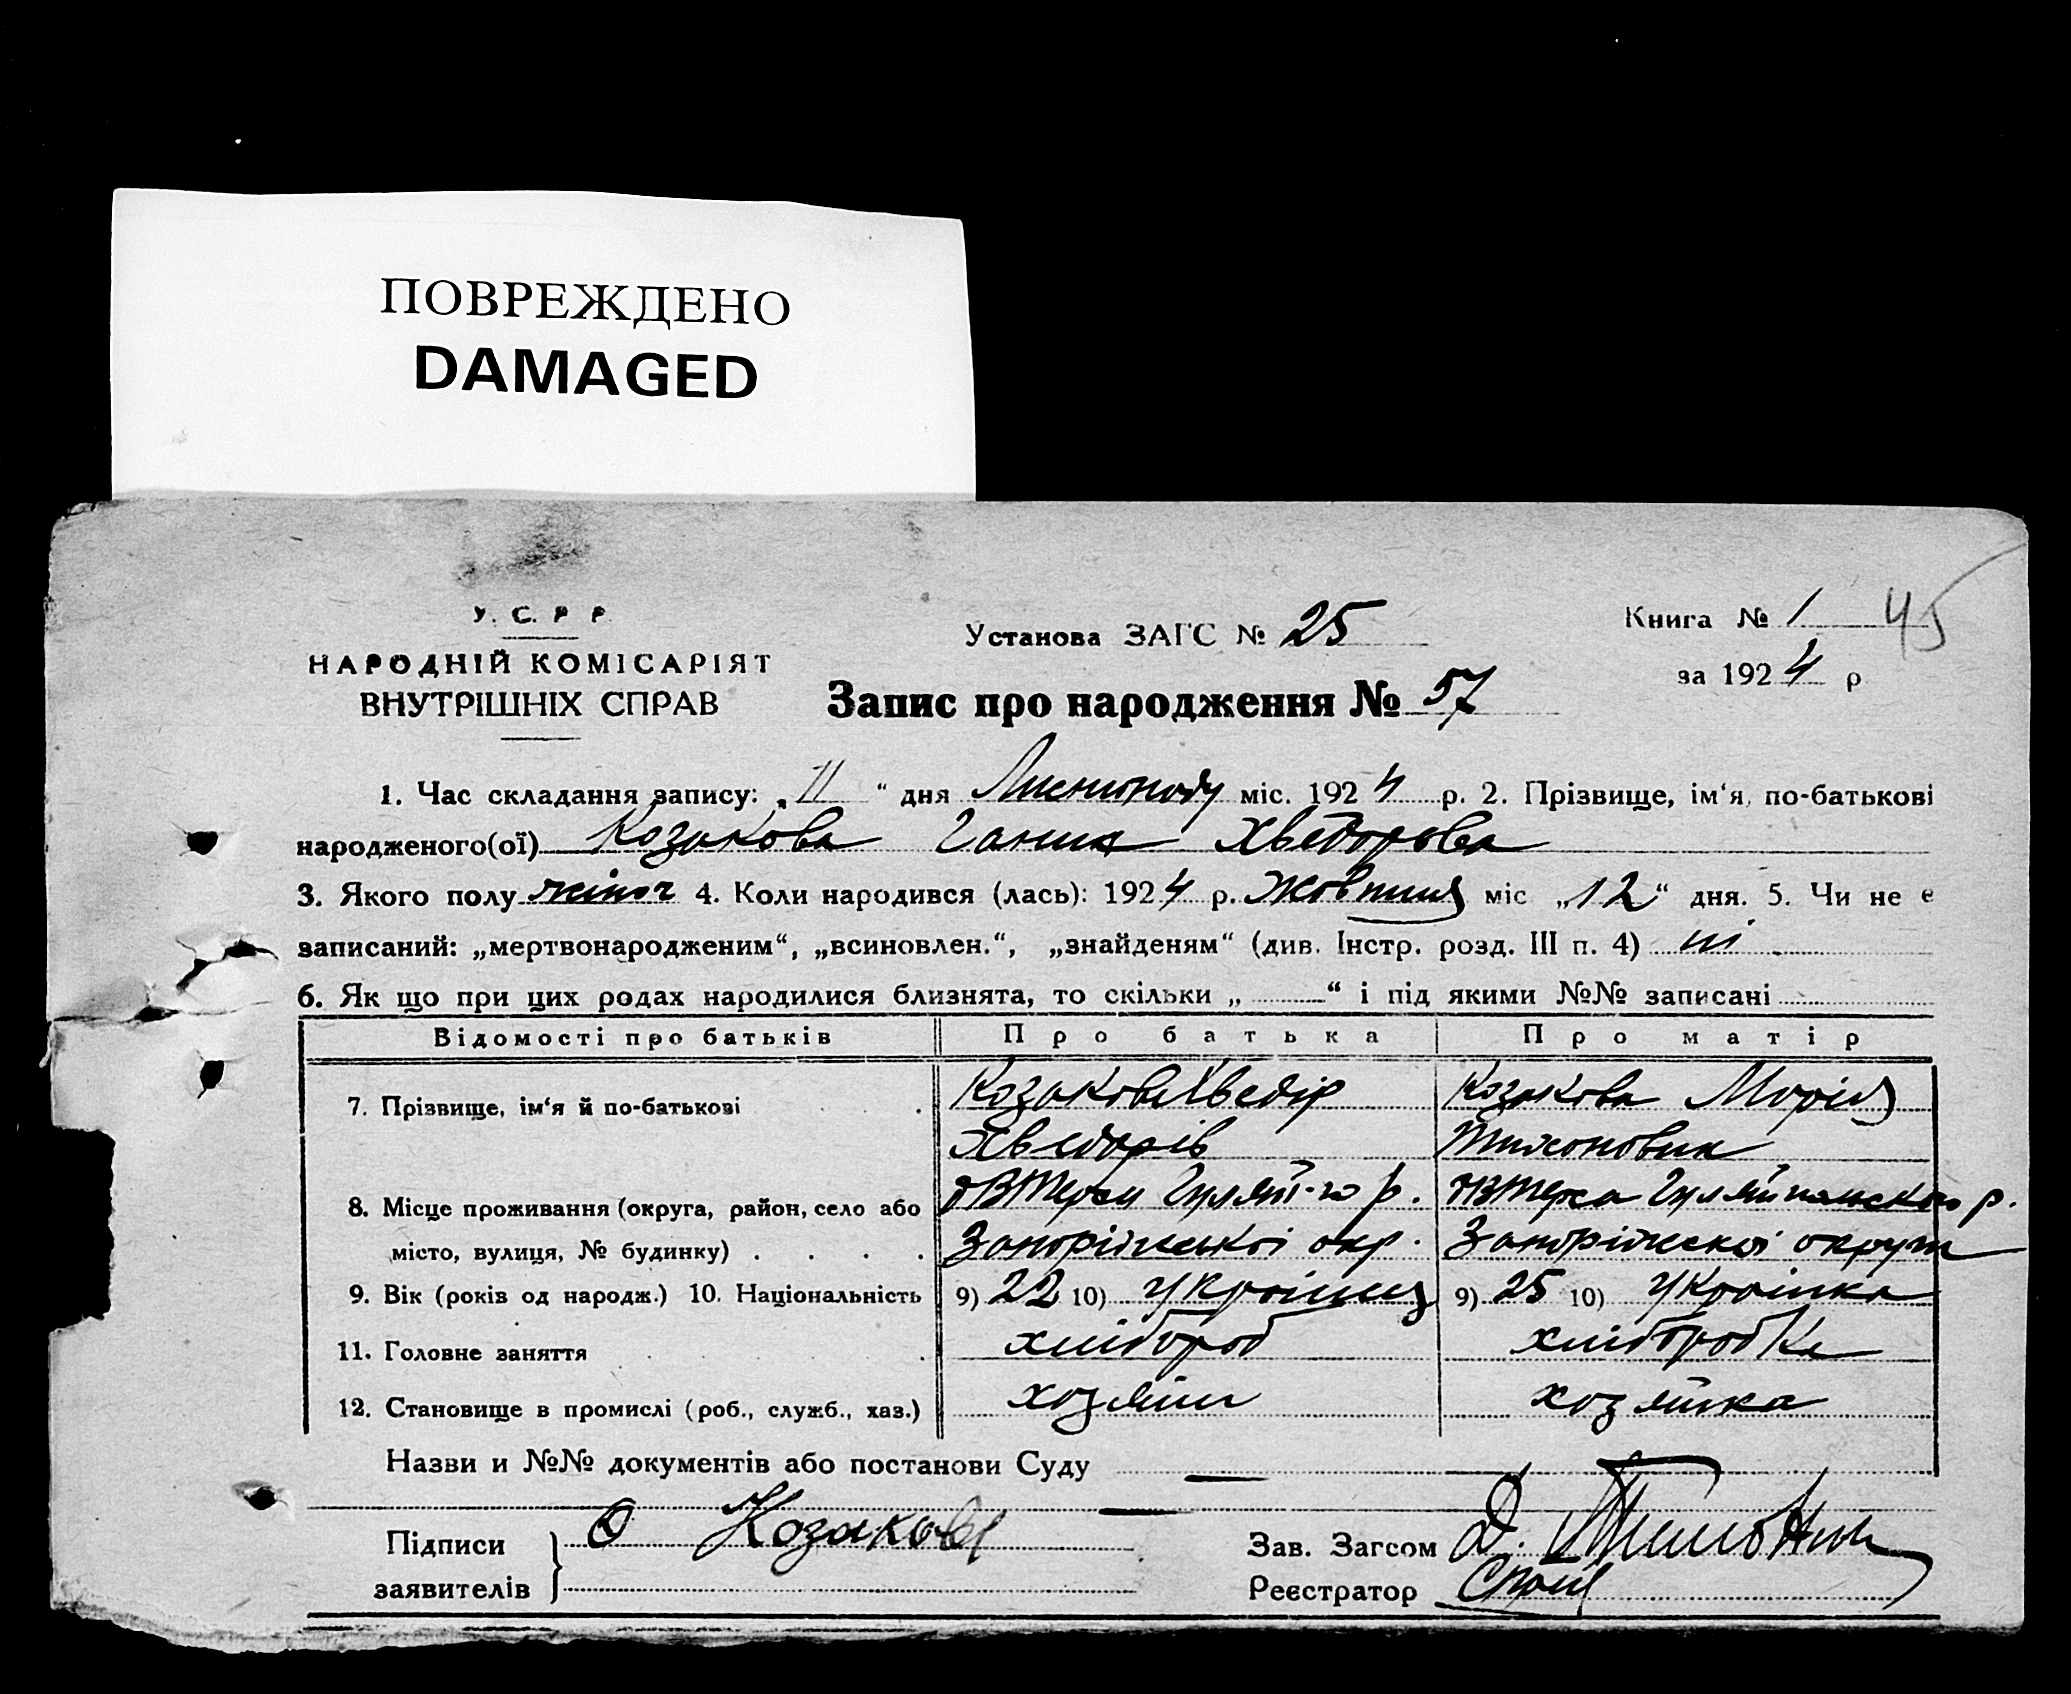 ПОВРЕЖДЕНО
DAMAGED
У. С. Р Р
НАРОДНІЙ КОМІСАРІЯТ
ВНУТРІШНІХ СПРАВ
Установа ЗАГС № 25
Книга № 1 45
за 1924 р
Запис про народження № 57
1. Час складання запису: „11“ дня Листопаду міс. 1924 р. 2. Прізвище, ім‘я, по-батькові
народженого(ої) Козакова Ганна Хведорова
3. Якого полу жіноч 4. Коли народився (лась): 1924 р. Жовтня міс „12“ дня. 5. Чи не є
записаний: „мертвонародженим“, „всиновлен.“, „знайденям“ (див. Інстр. розд. III п. 4) ні
6. Як що при цих родах народилися близнята, то скільки „ “ і під якими №№ записані
Відомості про батьків Про батька Про матір
7. Прізвище, ім‘я й по-батькові Козаков Хведір Козакова Марія
Хведорів Тихоновна
8. Місце проживання (округа, район, село або Гуляй-го р. Гуляйпольского р.
місто, вулиця, № будинку) Запоріжської окр. Запоріжскої округи
9. Вік (років од народж.) 10. Національність 9) 22 10) Українец 9) 25 10) Українка
11. Головне заняття хлібороб хлібаробка
12. Становище в промислі (роб., служб., хаз.) хозяін хозяйка
Назви и №№ документів або постанови Суду
Підписи Козаков
заявителів
Зав. Загсом Д.
Реєстратор